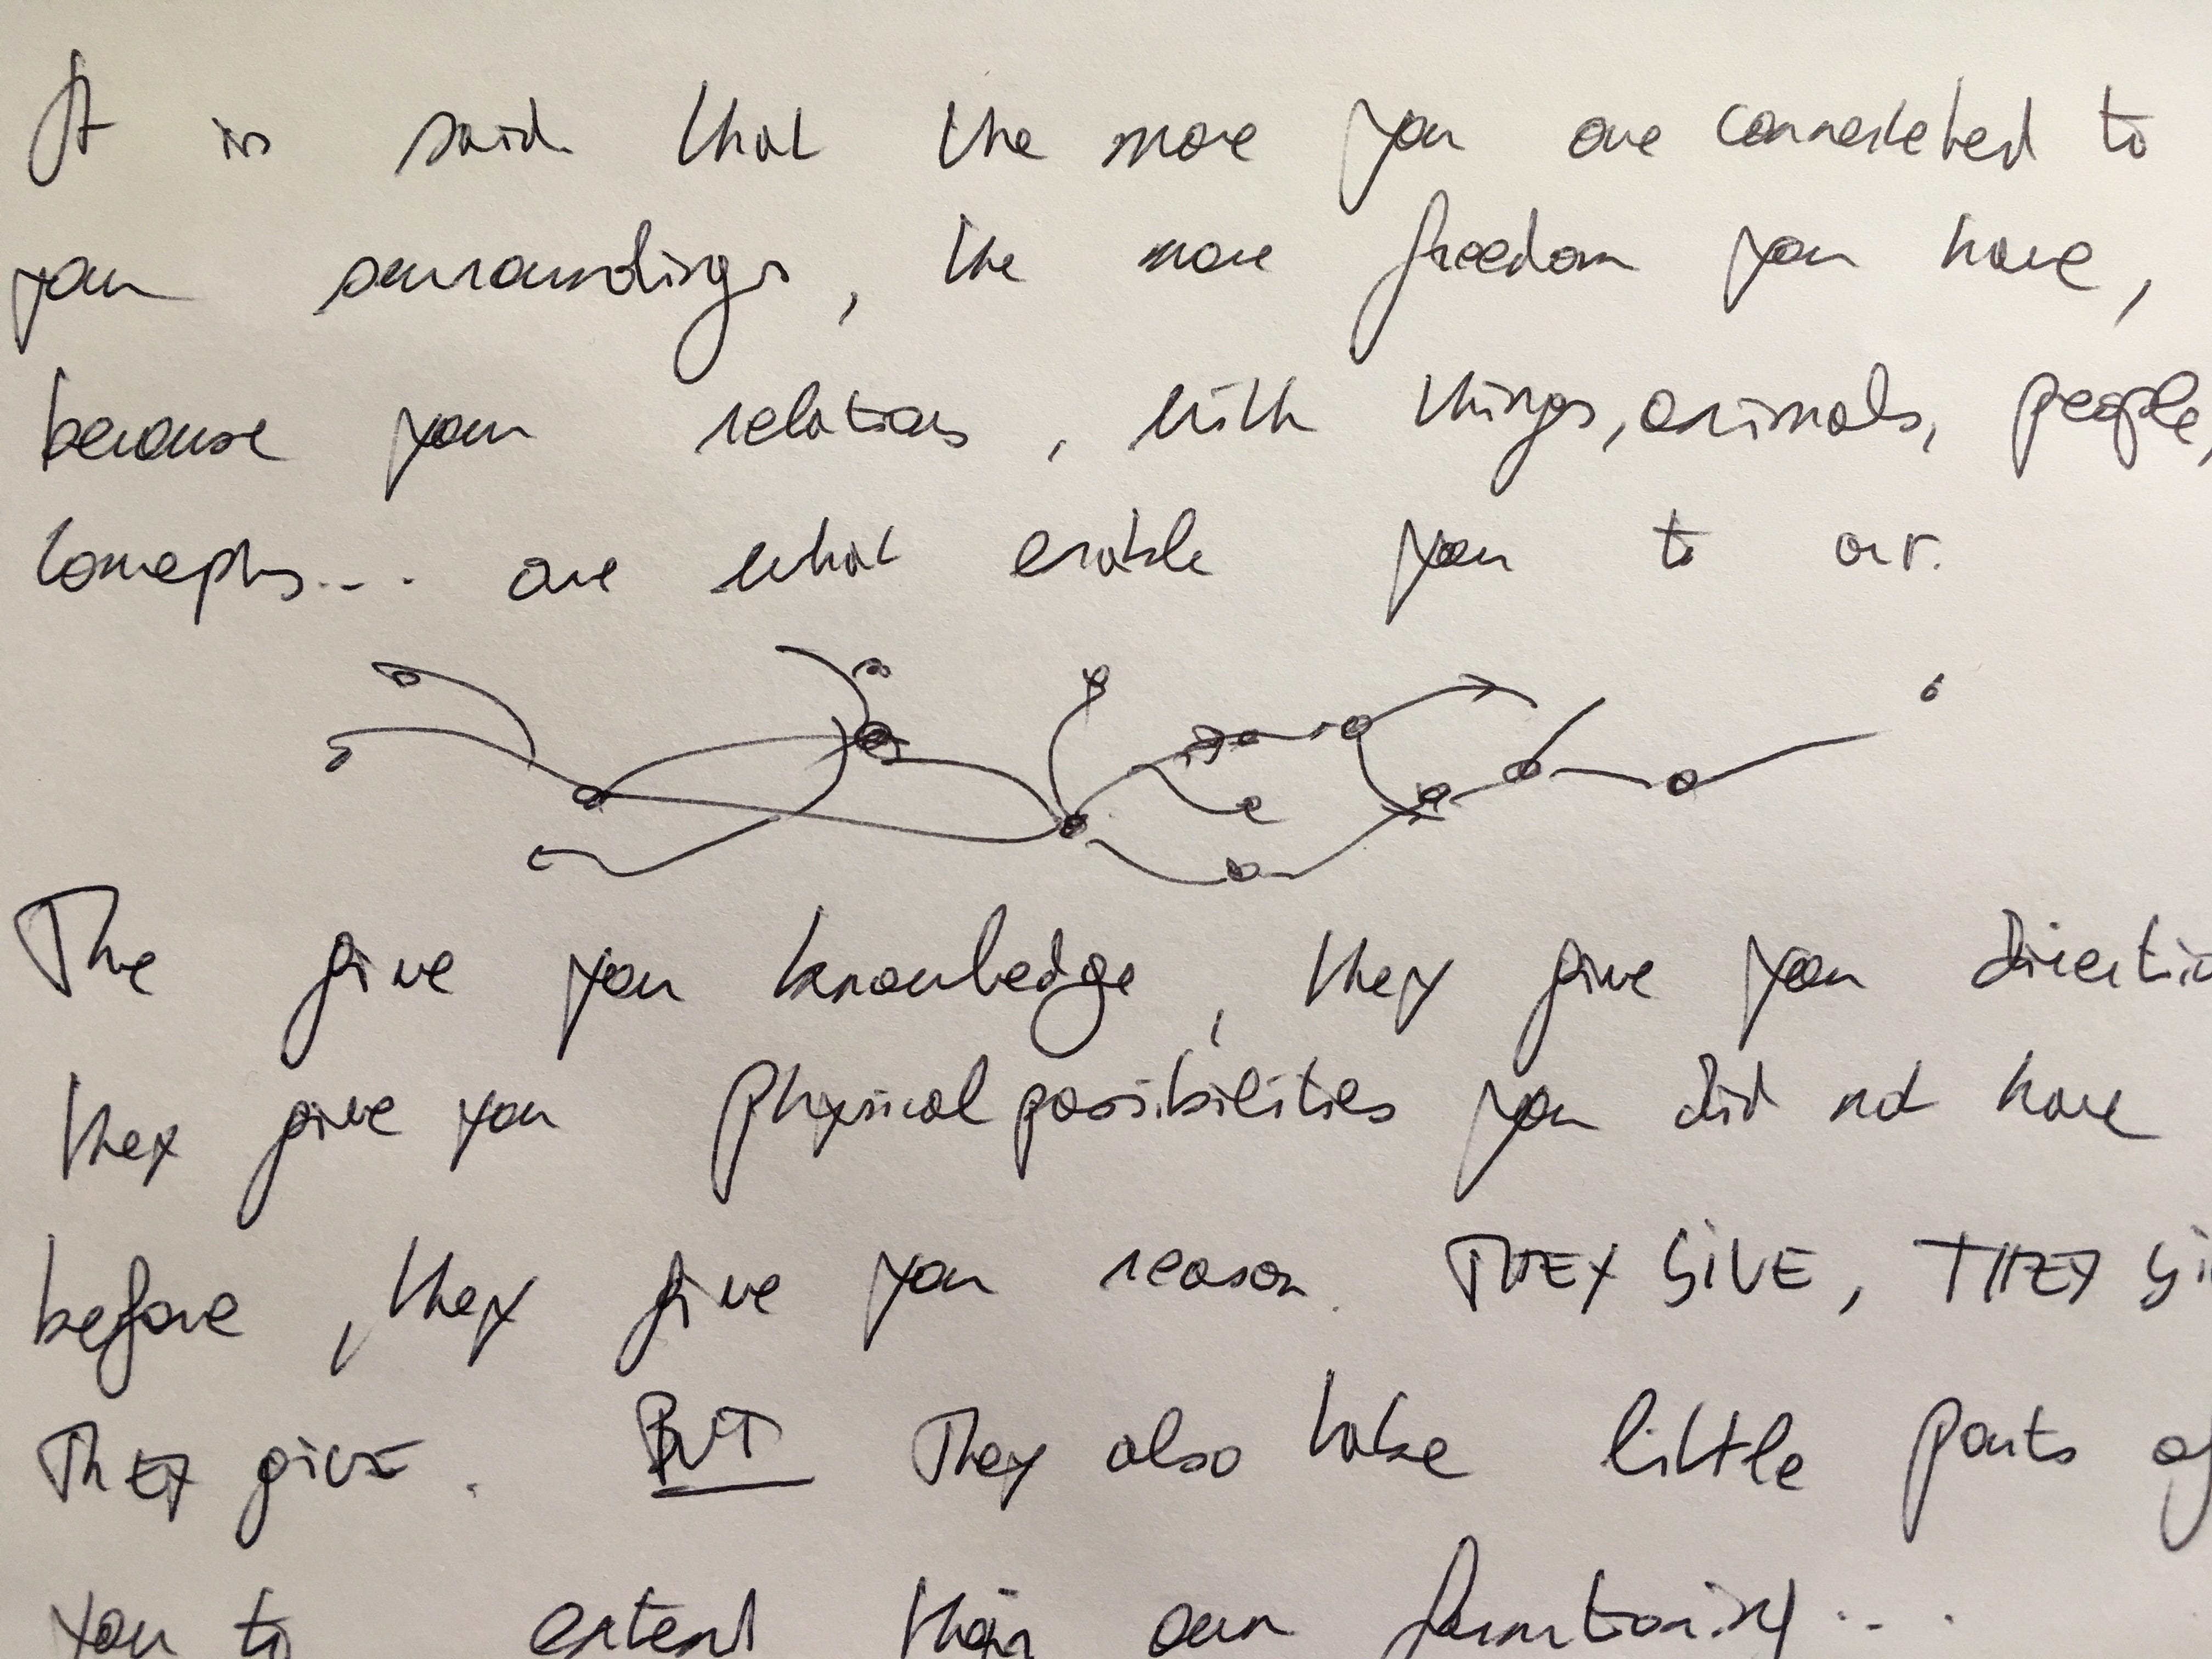 It is said that the more you are connected to
your surroundings, the more freedom you have,
because your relations, with things, animals, people,
concepts... are what enable you to act.
The give you knowledge, they give you directio
they give you physical possibilities you did not have
before, they give you reason. THEY GIVE, THEY GI
THEY give. BUT They also take little parts of
you to extend their own functioning...